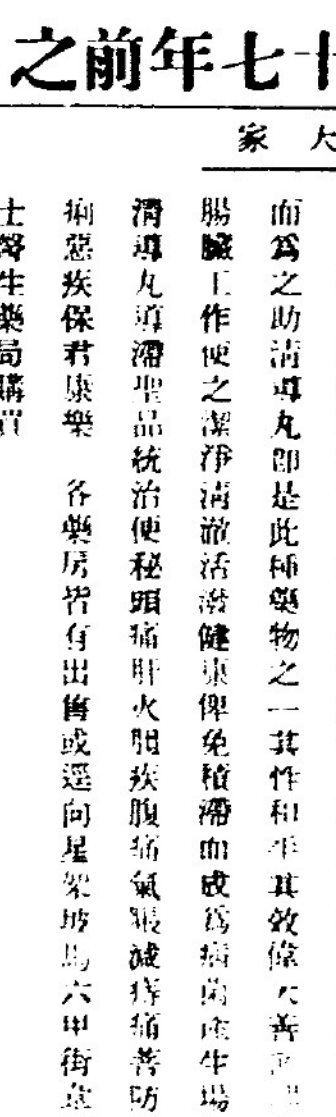 之前年七十
家大
而為之助清導丸卽是此種藥物之一其性和平其效偉大善
腸臟工作使之潔淨清澈活潑健康俾免積滯而成為病菌產生場
清導丸導滯聖品統治便秘頭痛肝火胆疾腹痛氣脹減痔痛善防
痢惡疾保君康樂 各藥房皆有出售或逕向星架坡馬六甲街
士醫生藥局購買